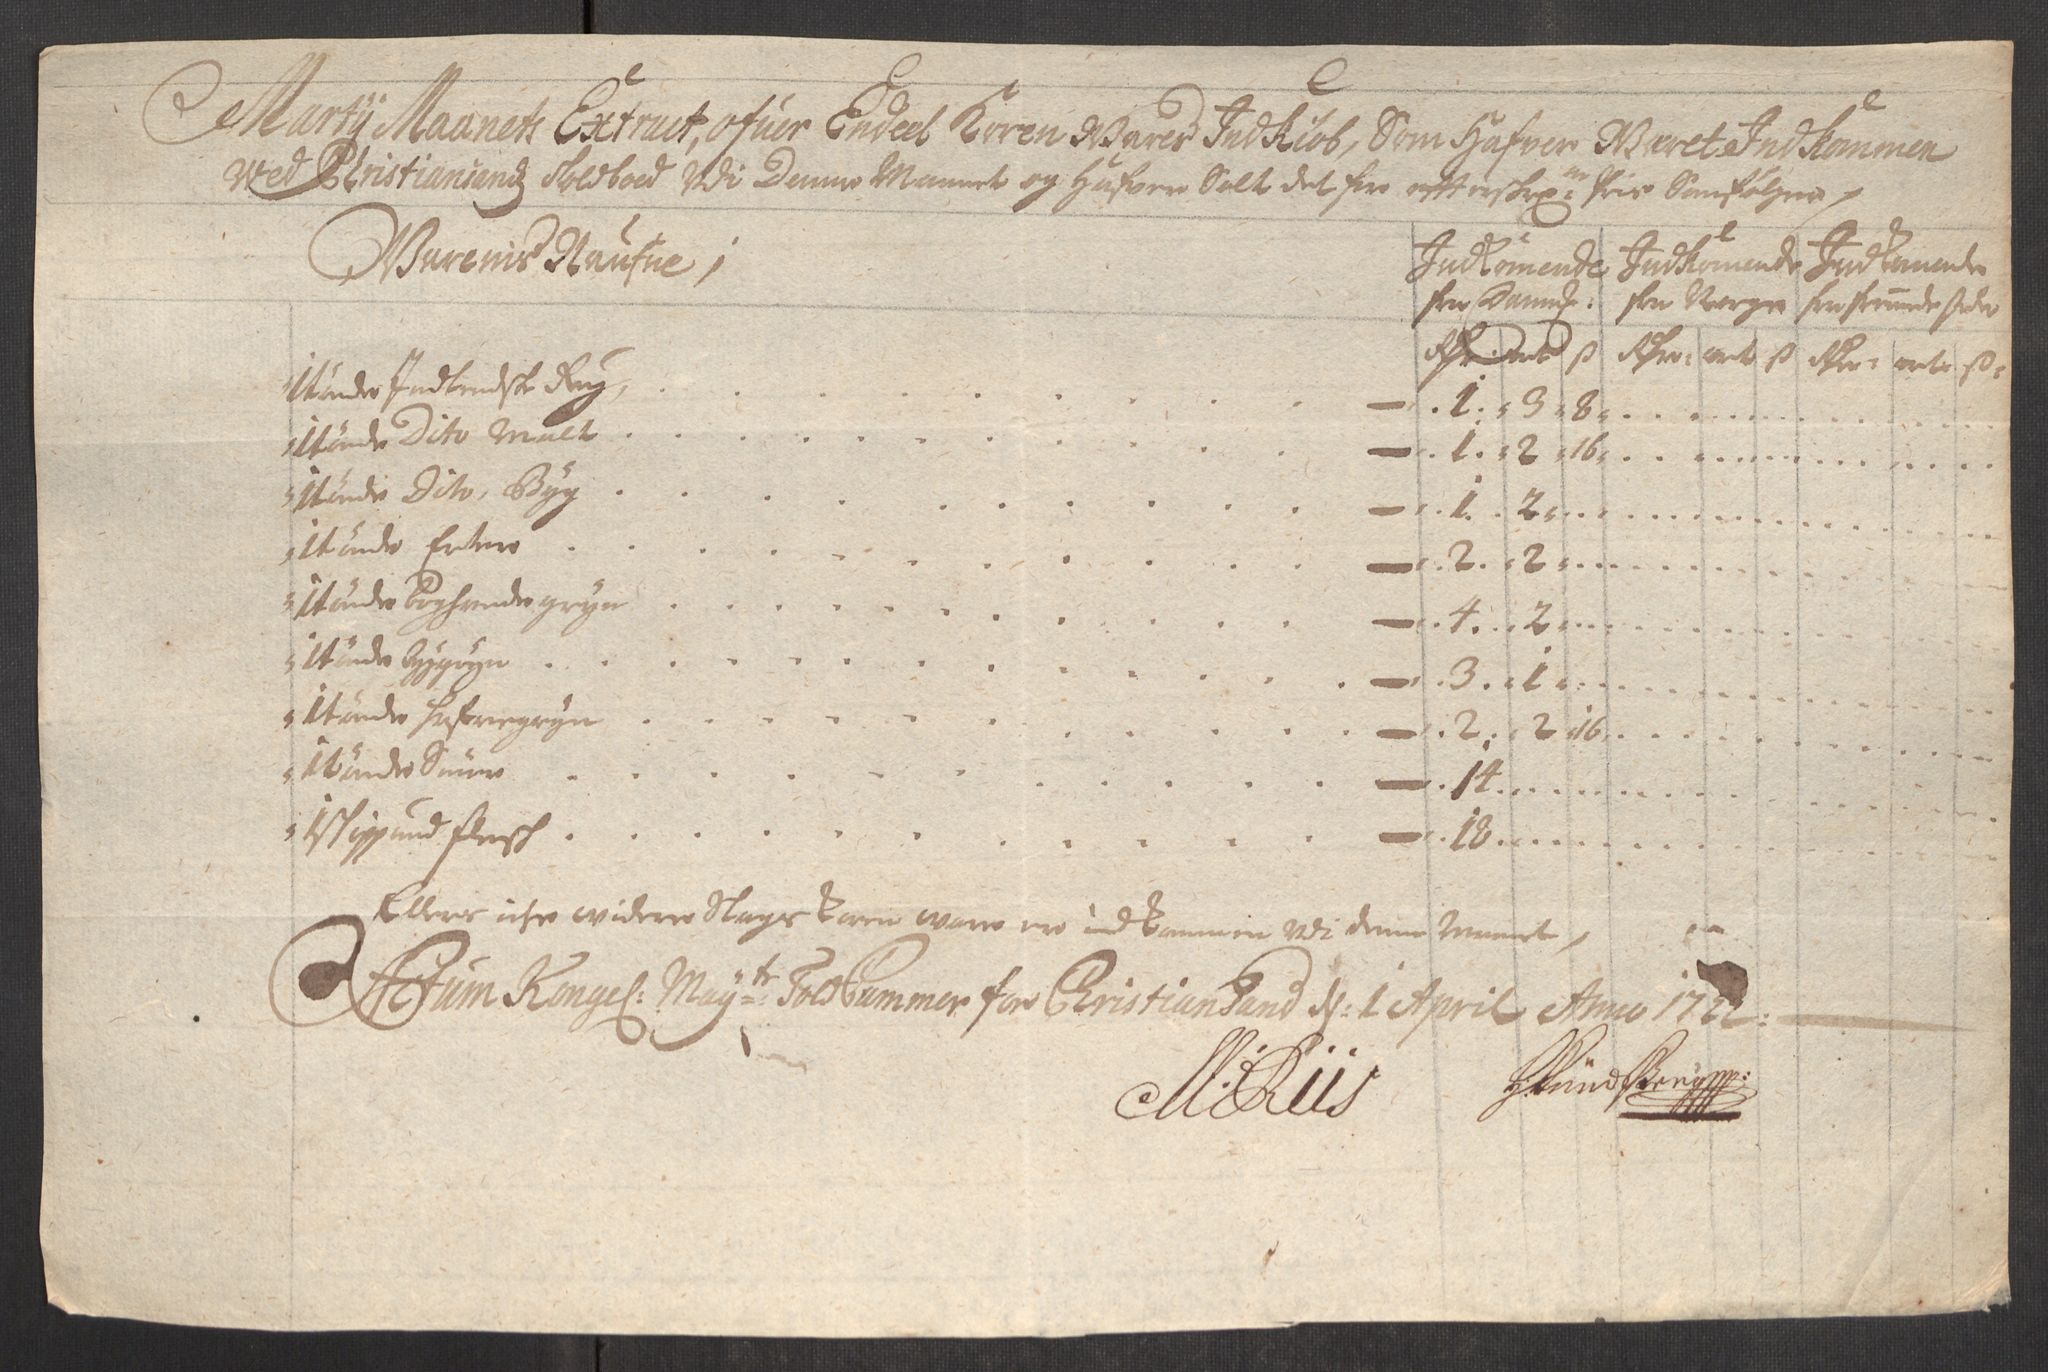 Martÿ Maanets Extract, ofuer Endeel Koren Wares Indkiøb, Som Hafver Waret Indkommen
Wed Christiansands Toldboed Udi Denne Maanet og Hafver Solt det for effterschr: Pris Somfølger,
Warenis Naufne,
Indkomende Indkomende Indkomende
fra Danmk: fra Norge fra fremmede steder
Rdr: ort ß Rdr: ort ß Rdr: ort ß
1 tønde Indlendsk Rug, 1. 3 8
1 tønde Dito Malt 1. 2 16
1 tønde Dito, Byg 1. 2
1 tønde Erter 2. 2
1 tønde Boghvede gryn 4. 2
1 tønde byggryn 3. 1
1 tønde hafregryn 2. 2 16
1 tønde 14
1 Schippund flesch 18
Ellers iche widere Slags koren ware er indkommen Udi denne Maanet,
Actum Kongel: Maytz: Told Cammer for Christiansand d: 1 April Anno 172
M: Riis